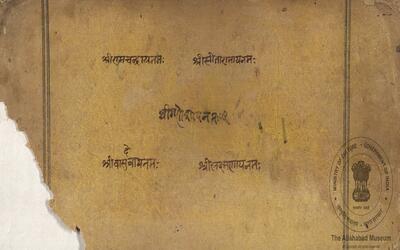 श्रीरामचन्द्रायनमः श्रीसीतारामायनमः
श्रीगणेशायनमः
दे
श्रीवासुवायनमः श्रीलक्ष्मणायनमः
MINISTRY OF CULTURE
GOVERNMENT OF INDIA
The Allahabad Museum